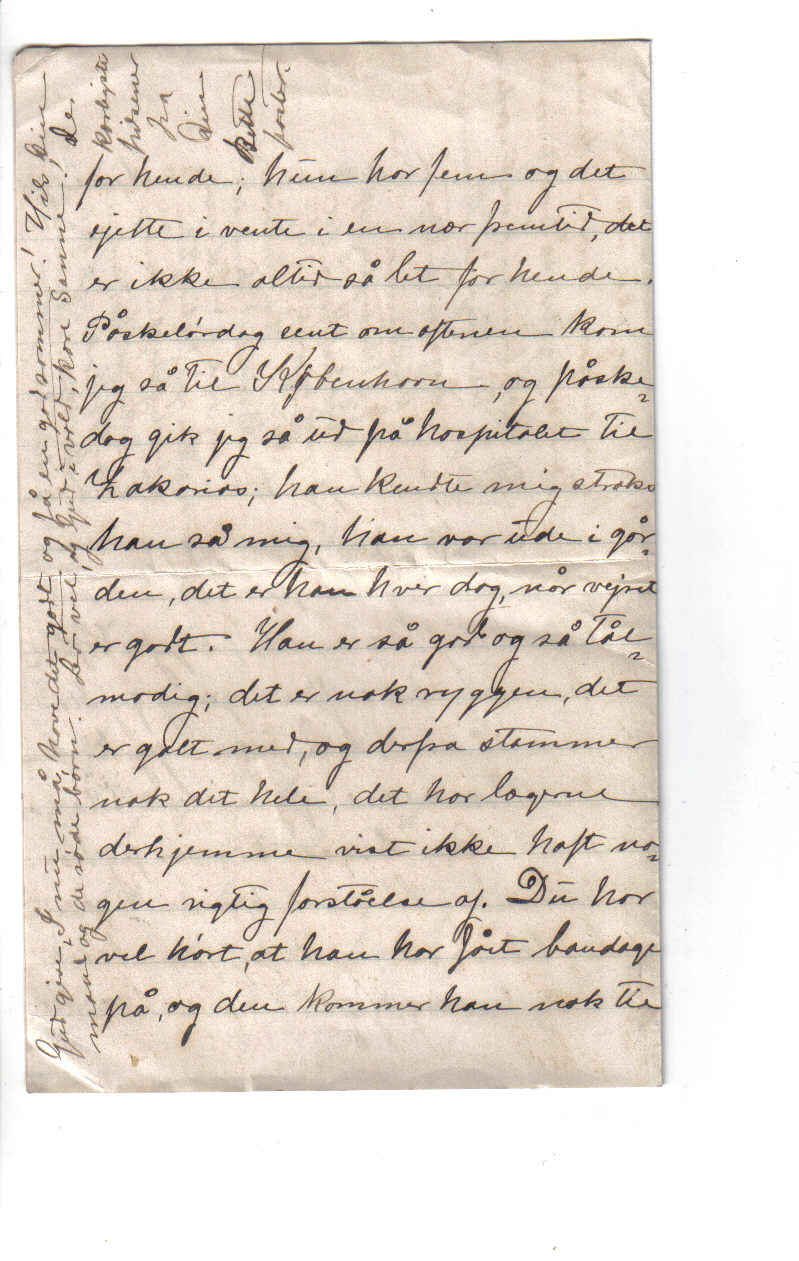 for hende; hun har fem og det
sjette i vente i en nær fremtid, det
er ikke altid så let for hende.
Påskelørdag sent om aftenen kom
jeg så til København, og påske=
dag gik jeg så ud på hospitalet til
Zakarias; han kendte mig straks
han så mig, han var ude i går=
den, det er han hver dag, når vejret
er godt. Han er så god og så tål=
modig; det er nok ryggen, det
er galt med, og derfra stammer
nok det hele, det har lægerne
derhjemme vist ikke haft no=
gen rigtig forståelse af. Du har
vel hørt, at han har fået bandage
på, og den kommer han nok til
Gud give, I nu må have det godt og få en god sommer! Hils Din
mand og de søde børn. Lev vel, og Gud i vold, kære Sanne! de
kærligste
hilsener
fra
Din
Bitte
faster.